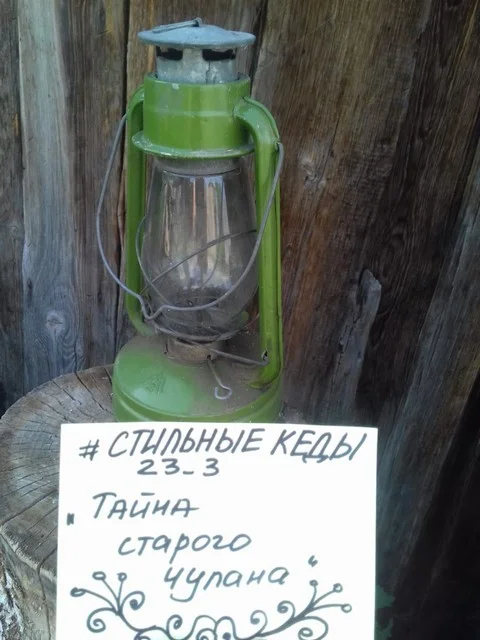 # СТИЛЬНЫЕ КЕДЫ
23-3
„ Тайна
старого
чулана “